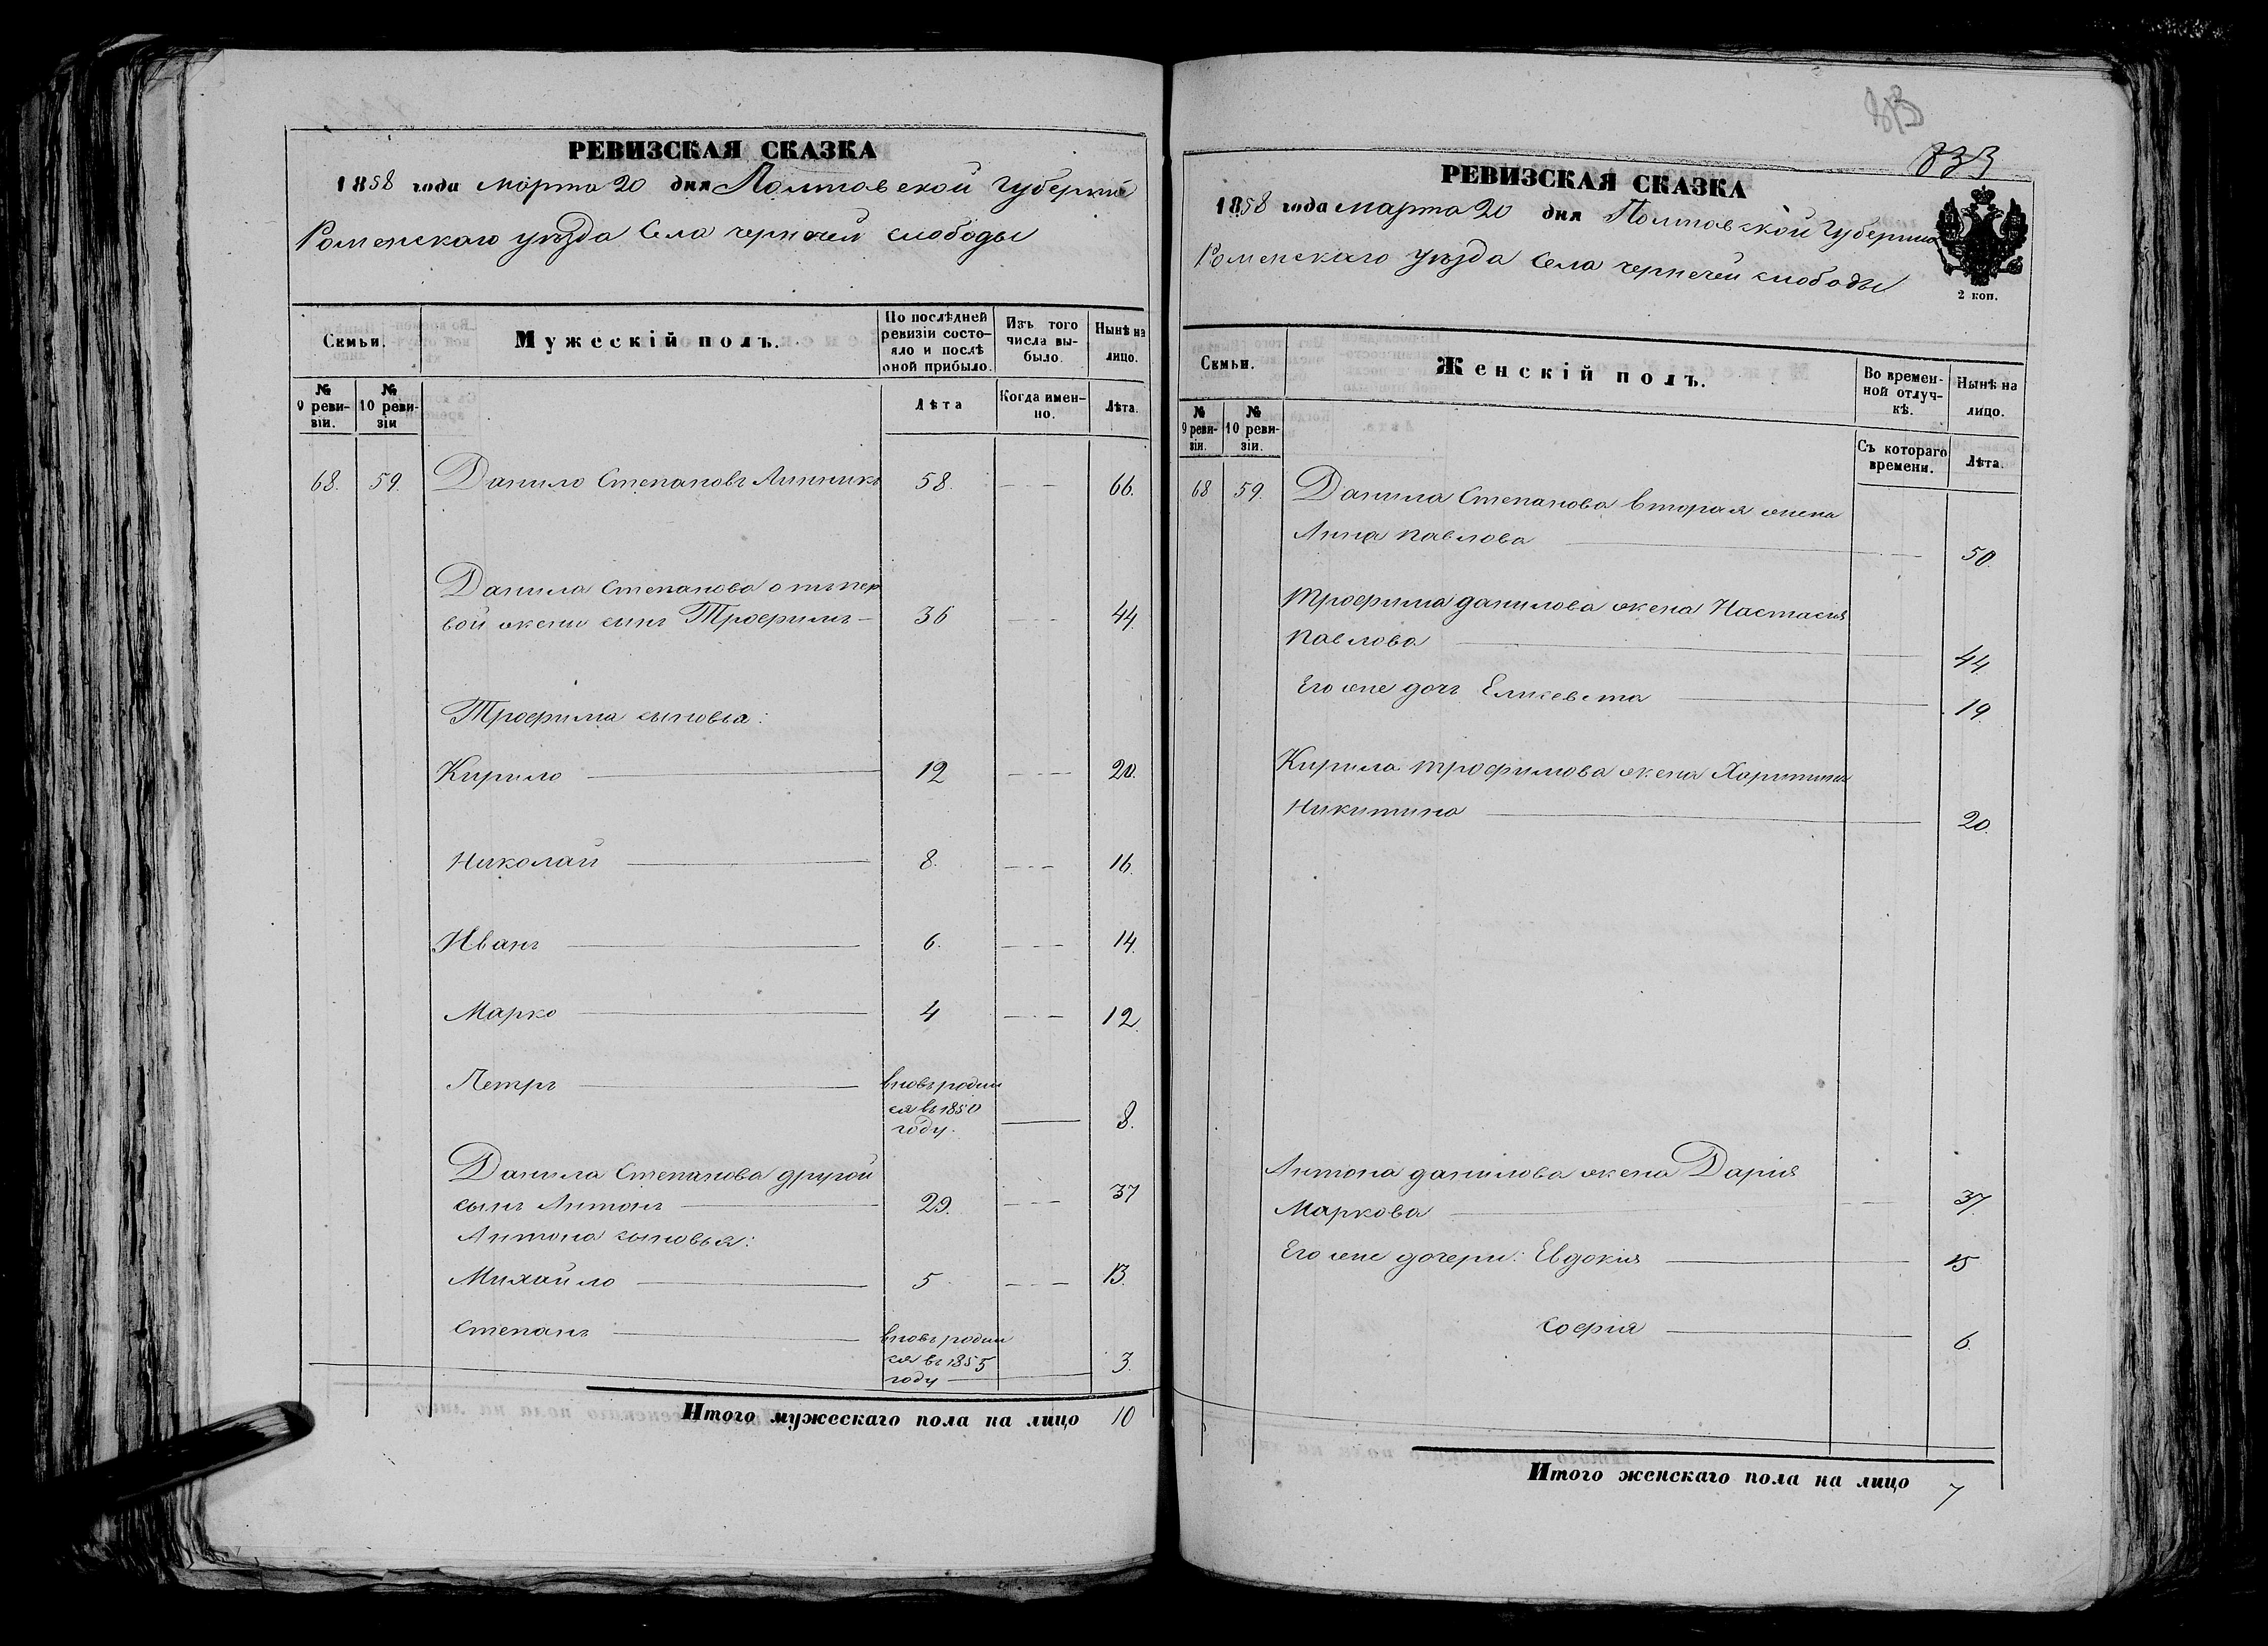 РЕВИЗСКАЯ СКАЗКА
1858 года марта 20 дня Полтавской Губерніи
Роменскаго уѣзда Села чернечей слободы
Семьи.
Мужескій полъ.
По послѣдней
ревизіи состо-
яло и послѣ
оной прибыло.
Изъ того
числа вы-
было.
Нынѣ на
лицо.
№
9 реви-
зіи.
№
10 реви-
зіи
Лѣта
Когда имен-
но.
Лѣта.
68. 59. Данило Степановъ Линникъ 58. 66.
Данила Степанова отъ пер
вой жены сынъ Трофимъ 36 44.
Трофима сыновья:
Кирило 12 20.
Николай 8. 16.
Иванъ 6. 14.
Марко 4 12.
Петръ вновь родил
ся въ 1850
году. 8.
Данила Степанова другой
сынъ Антонъ 29. 37
Антона сыновья:
Михайло 5 13.
Степанъ вновь родил
ся въ 1855
году 3.
Итого мужескаго пола на лицо 10
833
РЕВИЗСКАЯ СКАЗКА
1858 года марта 20 дня Полтавской Губерніи
Роменскаго уѣзда Села чернечей слободы
2 коп.
Семьи.
Женскій полъ.
Во времен-
ной отлуч-
кѣ.
Нынѣ на
лицо.
№
9 реви-
зіи.
№
10 реви-
зіи.
Съ котораго
времени.
Лѣта.
68 59. Данила Степанова вторая жена
Анна Павлова 50.
Трофима данилова жена Настасія
Павлова 44.
Его же дочь Елисевета 19.
Кирила трофимова жена Харитина
Никитина 20.
Антона данилова жена Дарія
Маркова 37.
Его же дочери: Евдокія 15
Софія 6.
Итого женскаго пола на лицо 7